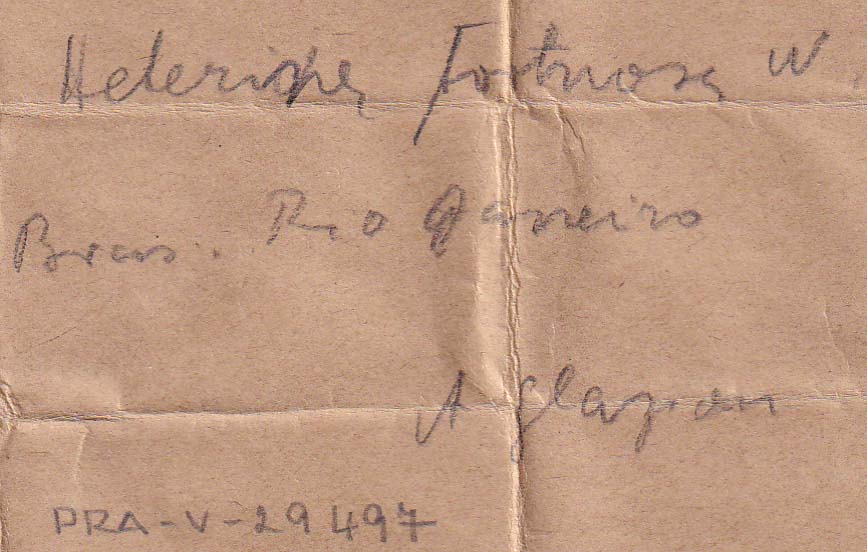 Heterina tortuosa W.
Bras. Rio Janeiro
A Glaziou
PRA-V-29497